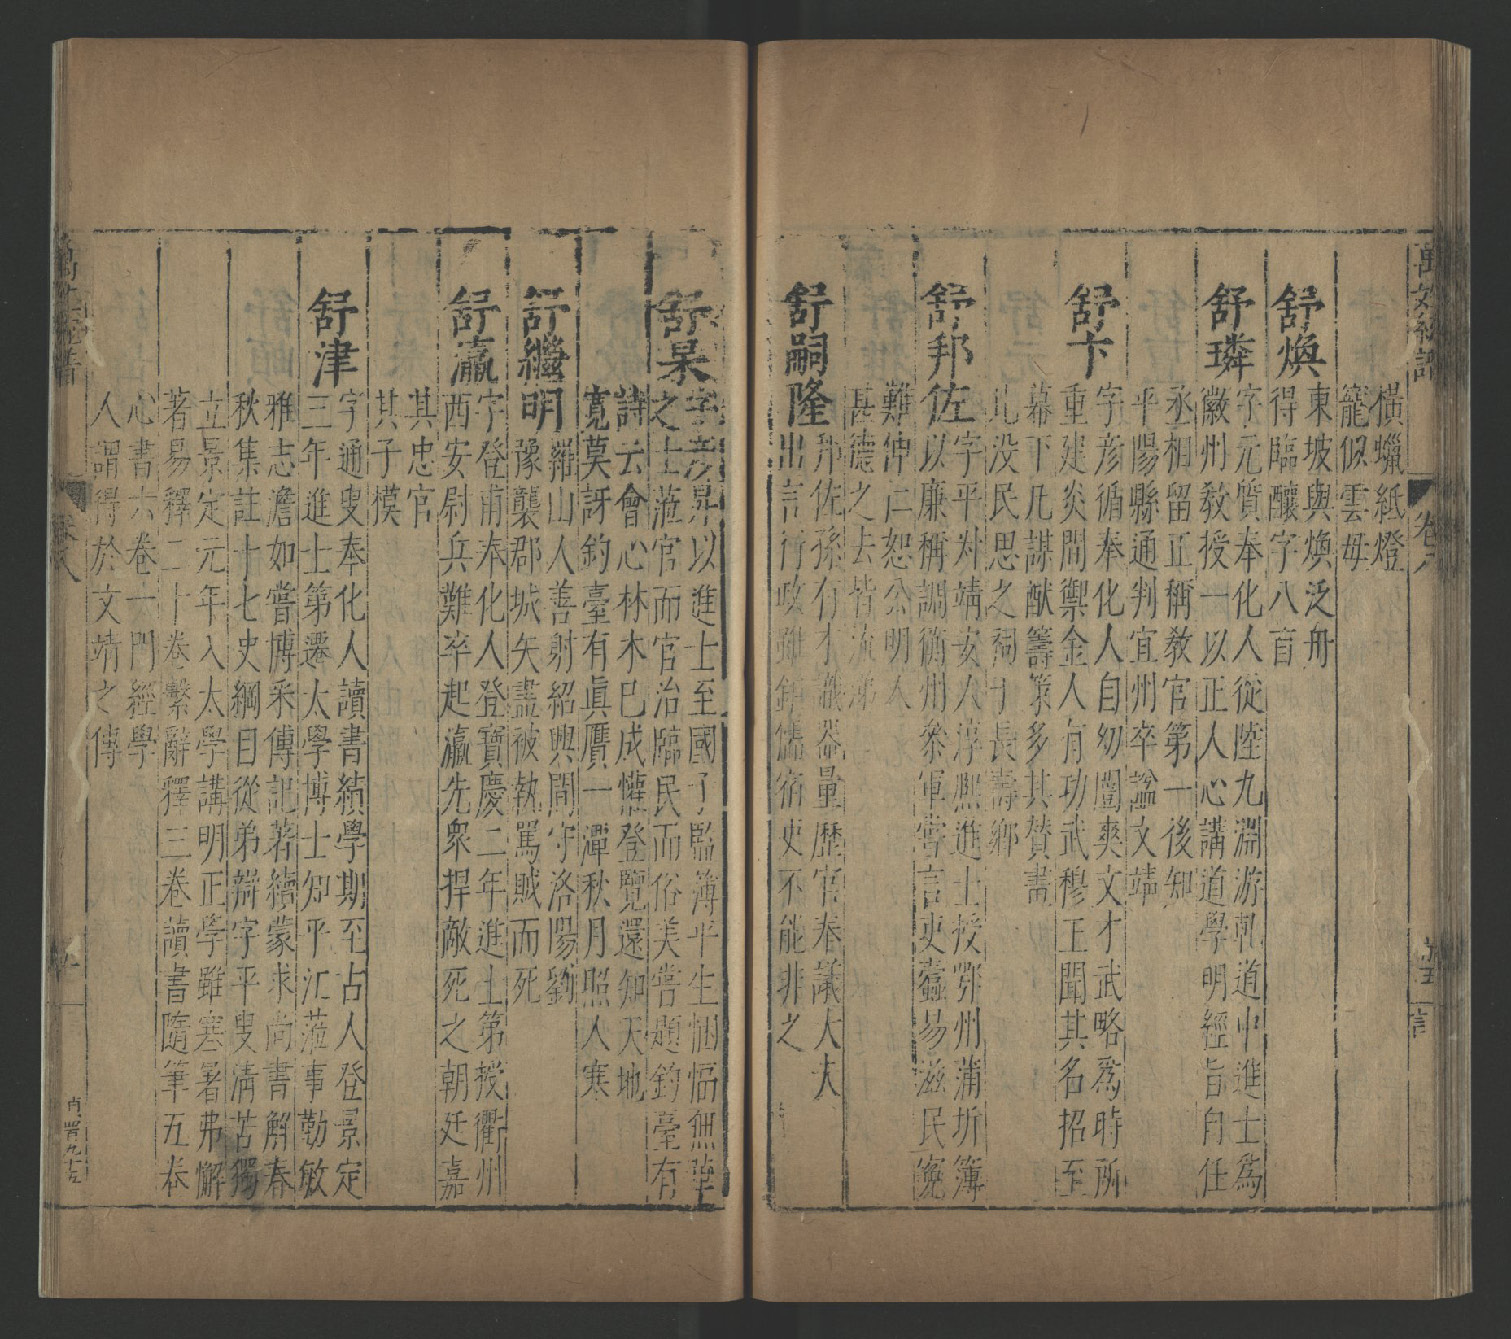 萬姓統譜 卷八
橫蠟紙燈
籠似雲母
舒煥 東坡與煥泛舟
得臨釀字八首
舒璘 字元質奉化人從陸九淵游乾道中進士為
徽州教授一以正人心講道學明經旨自任
丞相留正稱教官第一後知
平陽縣通判宜州卒謚文靖
舒卞 字彥循奉化人自幼闓爽文才武略為時所
重建炎間禦金人有功武穆王聞其名招至
幕下凡謀猷籌策多其贊畫
凡没民思之祠于長壽鄉
舒邦佐 字平叔靖安人淳熙進士授鄂州蒲圻簿
以廉稱調衡州參軍嘗言吏蠹易滋民寃
難伸仁恕公明人
甚德之去皆流涕
舒嗣隆 邦佐孫有才識器量歷官奉議大夫
出言行政雖鉅儒宿吏不能非之
舒杲 字彥昇以進士至國子監簿平生悃愊無華
之士蒞官而官治臨民而俗美嘗題釣臺有
詩云會心林木已成懽登覽還知天地
寬莫訝釣臺有眞贗一潭秋月照人寒
舒繼明 羅山人善射紹興間守洛陽劉
豫襲郡城矢盡被執罵賊而死
舒瀛 字登甫奉化人登寶慶二年進士第授衢州
西安尉兵難卒起瀛先衆捍敵死之朝廷嘉
其忠官
其子模
舒津 字通叟奉化人讀書績學期至古人登景定
三年進士第遷太學博士知平江蒞事勤敏
雅志澹如嘗博采傳記著續蒙求尚書解春
秋集註十七史綱目從弟辯字平叟清苦獨
立景定元年入太學講明正學雖寒暑弗懈
著易釋二十卷繫辭釋三卷讀書隨筆五卷
心書六卷一門經學
人謂得於文靖之傳
萬姓統譜 卷八